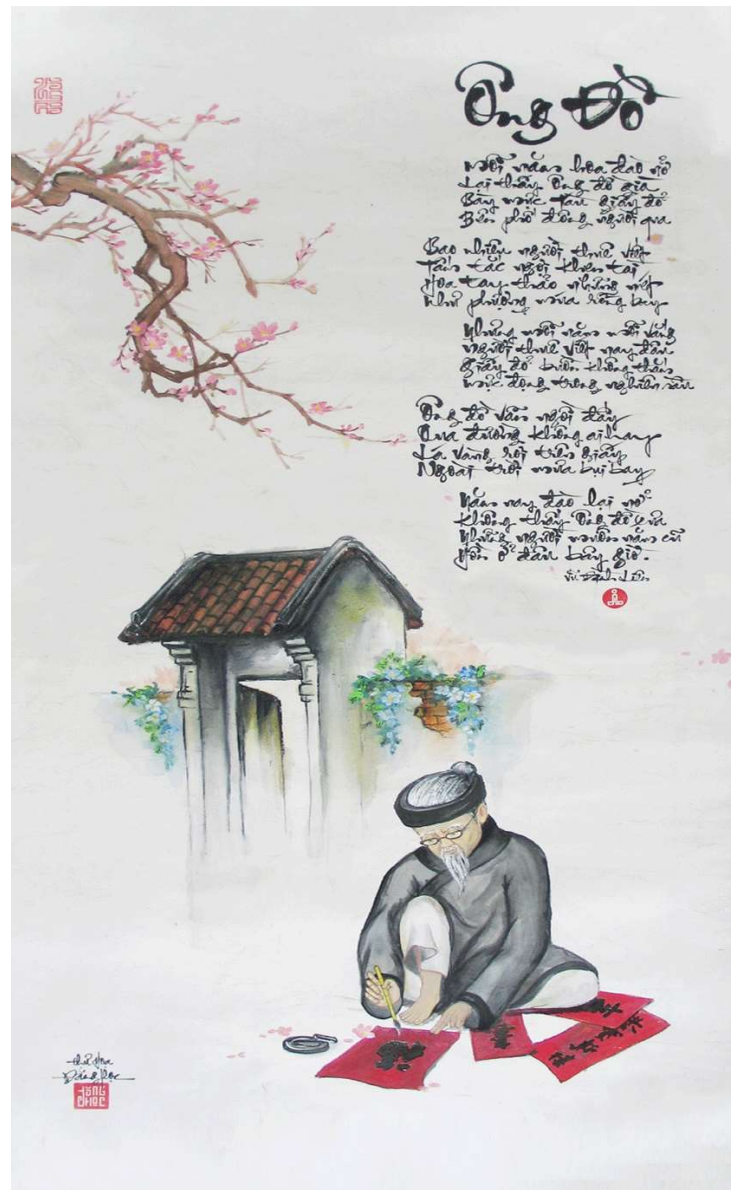 Ông Đồ
Mỗi năm hoa đào nở
Lại thấy Ông đồ già
Bày mực Tàu giấy đỏ
Bên phố đông người qua
Bao nhiêu người thuê viết
Tấm tắc ngợi khen tài
Hoa tay thảo những nét
Như phượng múa rồng bay
Nhưng mỗi năm mỗi vắng
Người thuê viết nay đâu
Giấy đỏ buồn không thắm
Mực đọng trong nghiên sầu
Ông đồ vẫn ngồi đấy
Qua đường không ai hay
Lá vàng rơi trên giấy
Ngoài trời mưa bụi bay
Năm nay đào lại nở
Không thấy Ông đồ xưa
Những người muôn năm cũ
Hồn ở đâu bây giờ.
Vũ Đình Liên
Thư họa